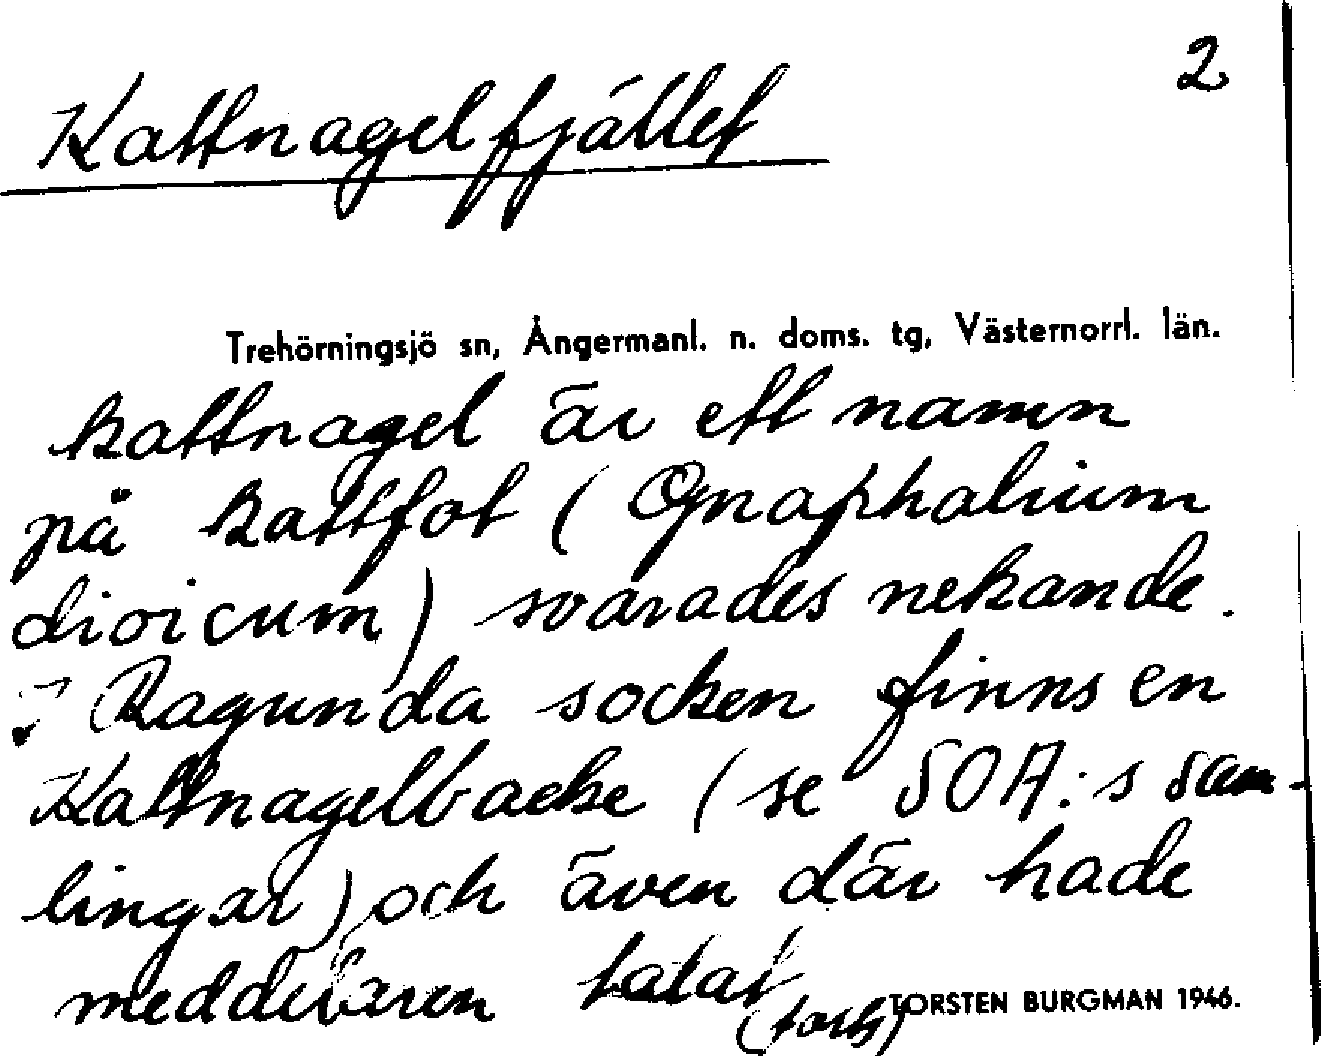 2
Kattnagelfjället
Trehörningsjö sn, Ångermanl. n. doms. tg, Västernorrl. län.
kattnagel är ett namn
på kattfot (Gnaphalium
dioicum) svarades nekande.
I Ragunda socken finns en
Kattnagelbacke (se SOA:s sam-
lingar) och även där hade
meddelaren talat
(forts)
TORSTEN BURGMAN 1946.